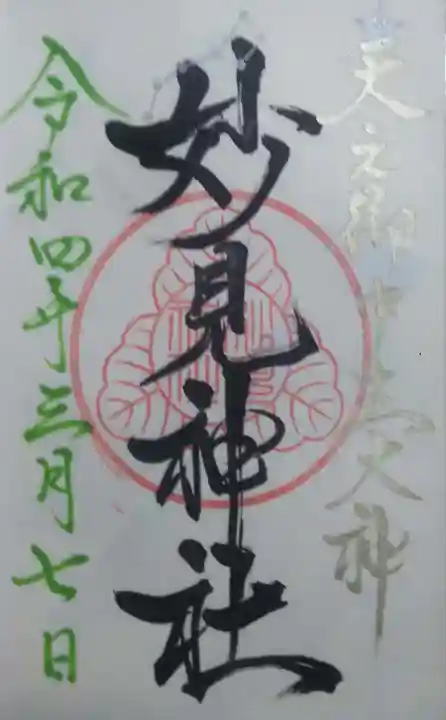 天之御中主大神
妙見神社
令和四年三月七日